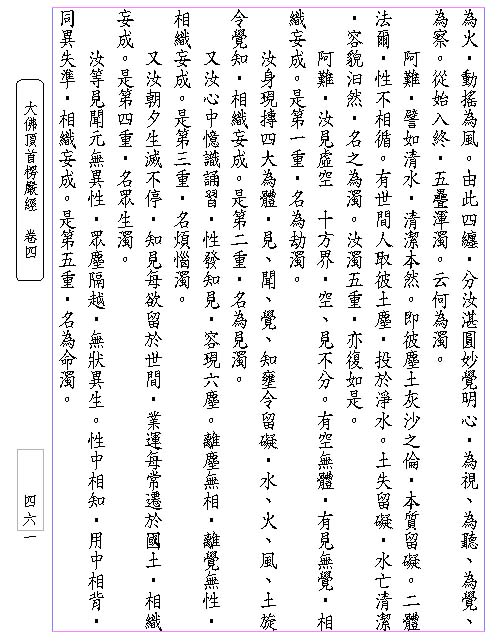 為火，動搖為風。由此四纏，分汝湛圓妙覺明心，為視、為聽、為覺、
為察。從始入終，五疊渾濁。云何為濁。
阿難，譬如清水，清潔本然。即彼塵土灰沙之倫，本質留礙。二體
法爾，性不相循。有世間人取彼土塵，投於淨水。土失留礙，水亡清潔
，容貌汩然，名之為濁。汝濁五重，亦復如是。
阿難，汝見虛空　十方界，空、見不分。有空無體，有見無覺，相
織妄成。是第一重，名為劫濁。
汝身現摶四大為體，見、聞、覺、知壅令留礙，水、火、風、土旋
令覺知，相織妄成。是第二重，名為見濁。
又汝心中憶識誦習，性發知見，容現六塵。離塵無相，離覺無性，
相織妄成。是第三重，名煩惱濁。
又汝朝夕生滅不停，知見每欲留於世間，業運每常遷於國土，相織
妄成。是第四重，名眾生濁。
汝等見聞元無異性，眾塵隔越，無狀異生。性中相知，用中相背，
同異失準，相織妄成。是第五重，名為命濁。
大佛頂首楞嚴經　卷四
四六一